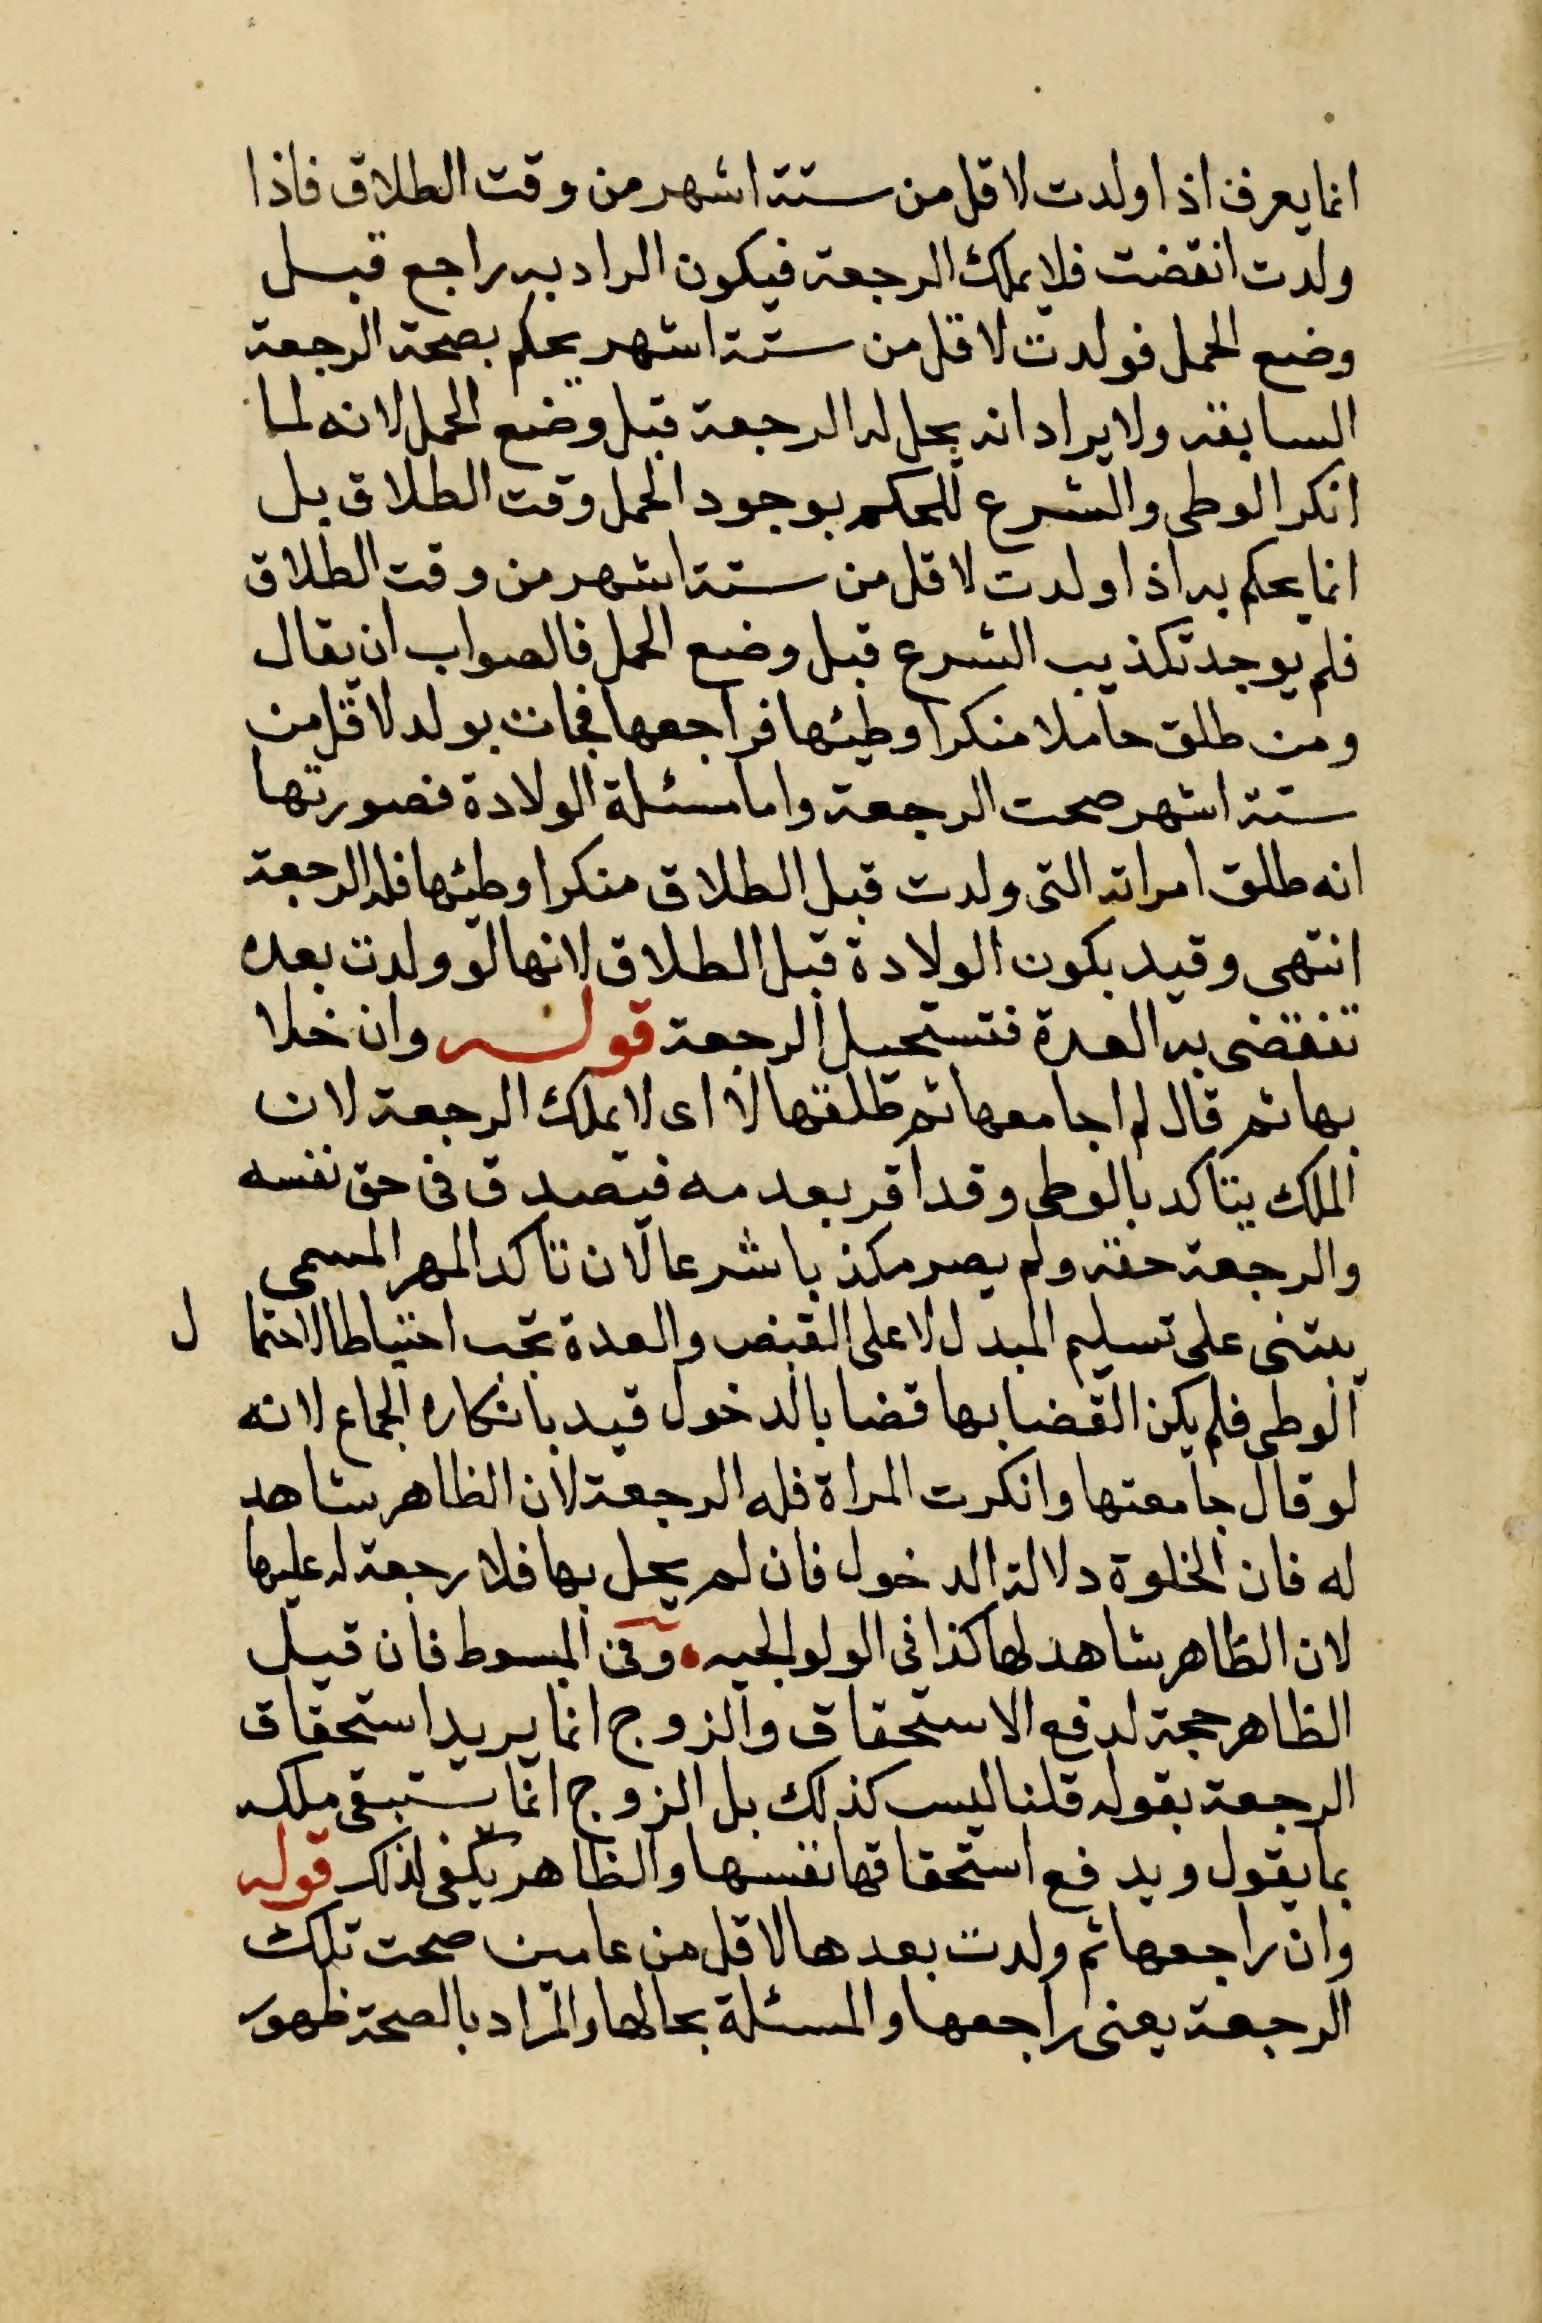 انما يعرف اذا ولدت لاقل من ستة اشهر من وقت الطلاق فاذا
ولدت انقضت فلا يملك الرجعة فيكون المراد به راجع قبل
وضع الحمل فولدت لاقل من ستة اشهر يحكم بصحة الرجعة
السابقة ولا يراد انه يحل له الرجعة قبل وضع الحمل لانه لما
انكر الوطى والشرع للحكم بوجود الحمل وقت الطلاق بل
انما يحكم به اذا ولدت لاقل من ستة اشهر من وقت الطلاق
فلم يوجد تكذيب الشرع قبل وضع الحمل فالصواب ان يقال
ومن طلق حاملا منكرا وطيئها فراجعها فجات بولد لاقل من
ستة اشهر صحت الرجعة واما مسئلة الولادة فصورتها
انه طلق امراته التى ولدت قبل الطلاق منكرا وطئها فله الرجعة
انتهى وقيد بكون الولادة قبل الطلاق لانها لو ولدت بعده
تنقضى به العدة فتستحيل الرجعة قوله وان خلا
بها ثم قال لم اجامعها ثم طلقها لا اى لا يملك الرجعة لان
الملك يتاكد بالوطى وقد اقر بعدمه فيصدق فى حق نفسه
والرجعة حقه ولم يصر مكذبا شرعا لان تاكد المهر المسمى
يبتنى على تسليم المبدل لا على القبض والعدة تجب احتياطا لاحتمال
الوطى فلم يكن القضا بها قضا بالدخول قيد بانكاره الجماع لانه
لو قال جامعتها وانكرت المراة فله الرجعة لان الظاهر شاهد
له فان الخلوة دلالة الدخول فان لم يخل بها فلا رجعة له عليها
لان الظاهر شاهد لها كذا فى الولوالجيه وفى المبسوط فان قيل
الظاهر حجة لدفع الاستحقاق والزوج انما يريد استحقاق
الرجعة بقوله قلنا ليس كذلك بل الزوج انما يستبقى ملكه
بما يقول ويدفع استحقاقها نفسها والظاهر يكفى لذلك قوله
وان راجعها ثم ولدت بعدها لاقل من عامين صحت تلك
الرجعة يعنى راجعها والمسئلة بحالها والمراد بالصحة ظهور